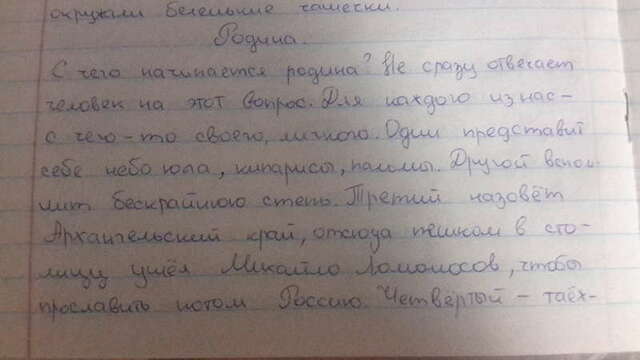 окружали беленькие чашечки.
Родина.
С чего начинается родина? Не сразу отвечает
человек на этот вопрос. Для каждого из нас –
с чего-то своего, личного. Один представит
себе небо юга, кипарисы, пальмы. Другой вспом-
нит бескрайнюю степь. Третий назовёт
Архангельский край, откуда пешком в сто-
лицу ушёл Михайло Ломоносов, чтобы
прославить потом Россию. Четвёртый – таёж-